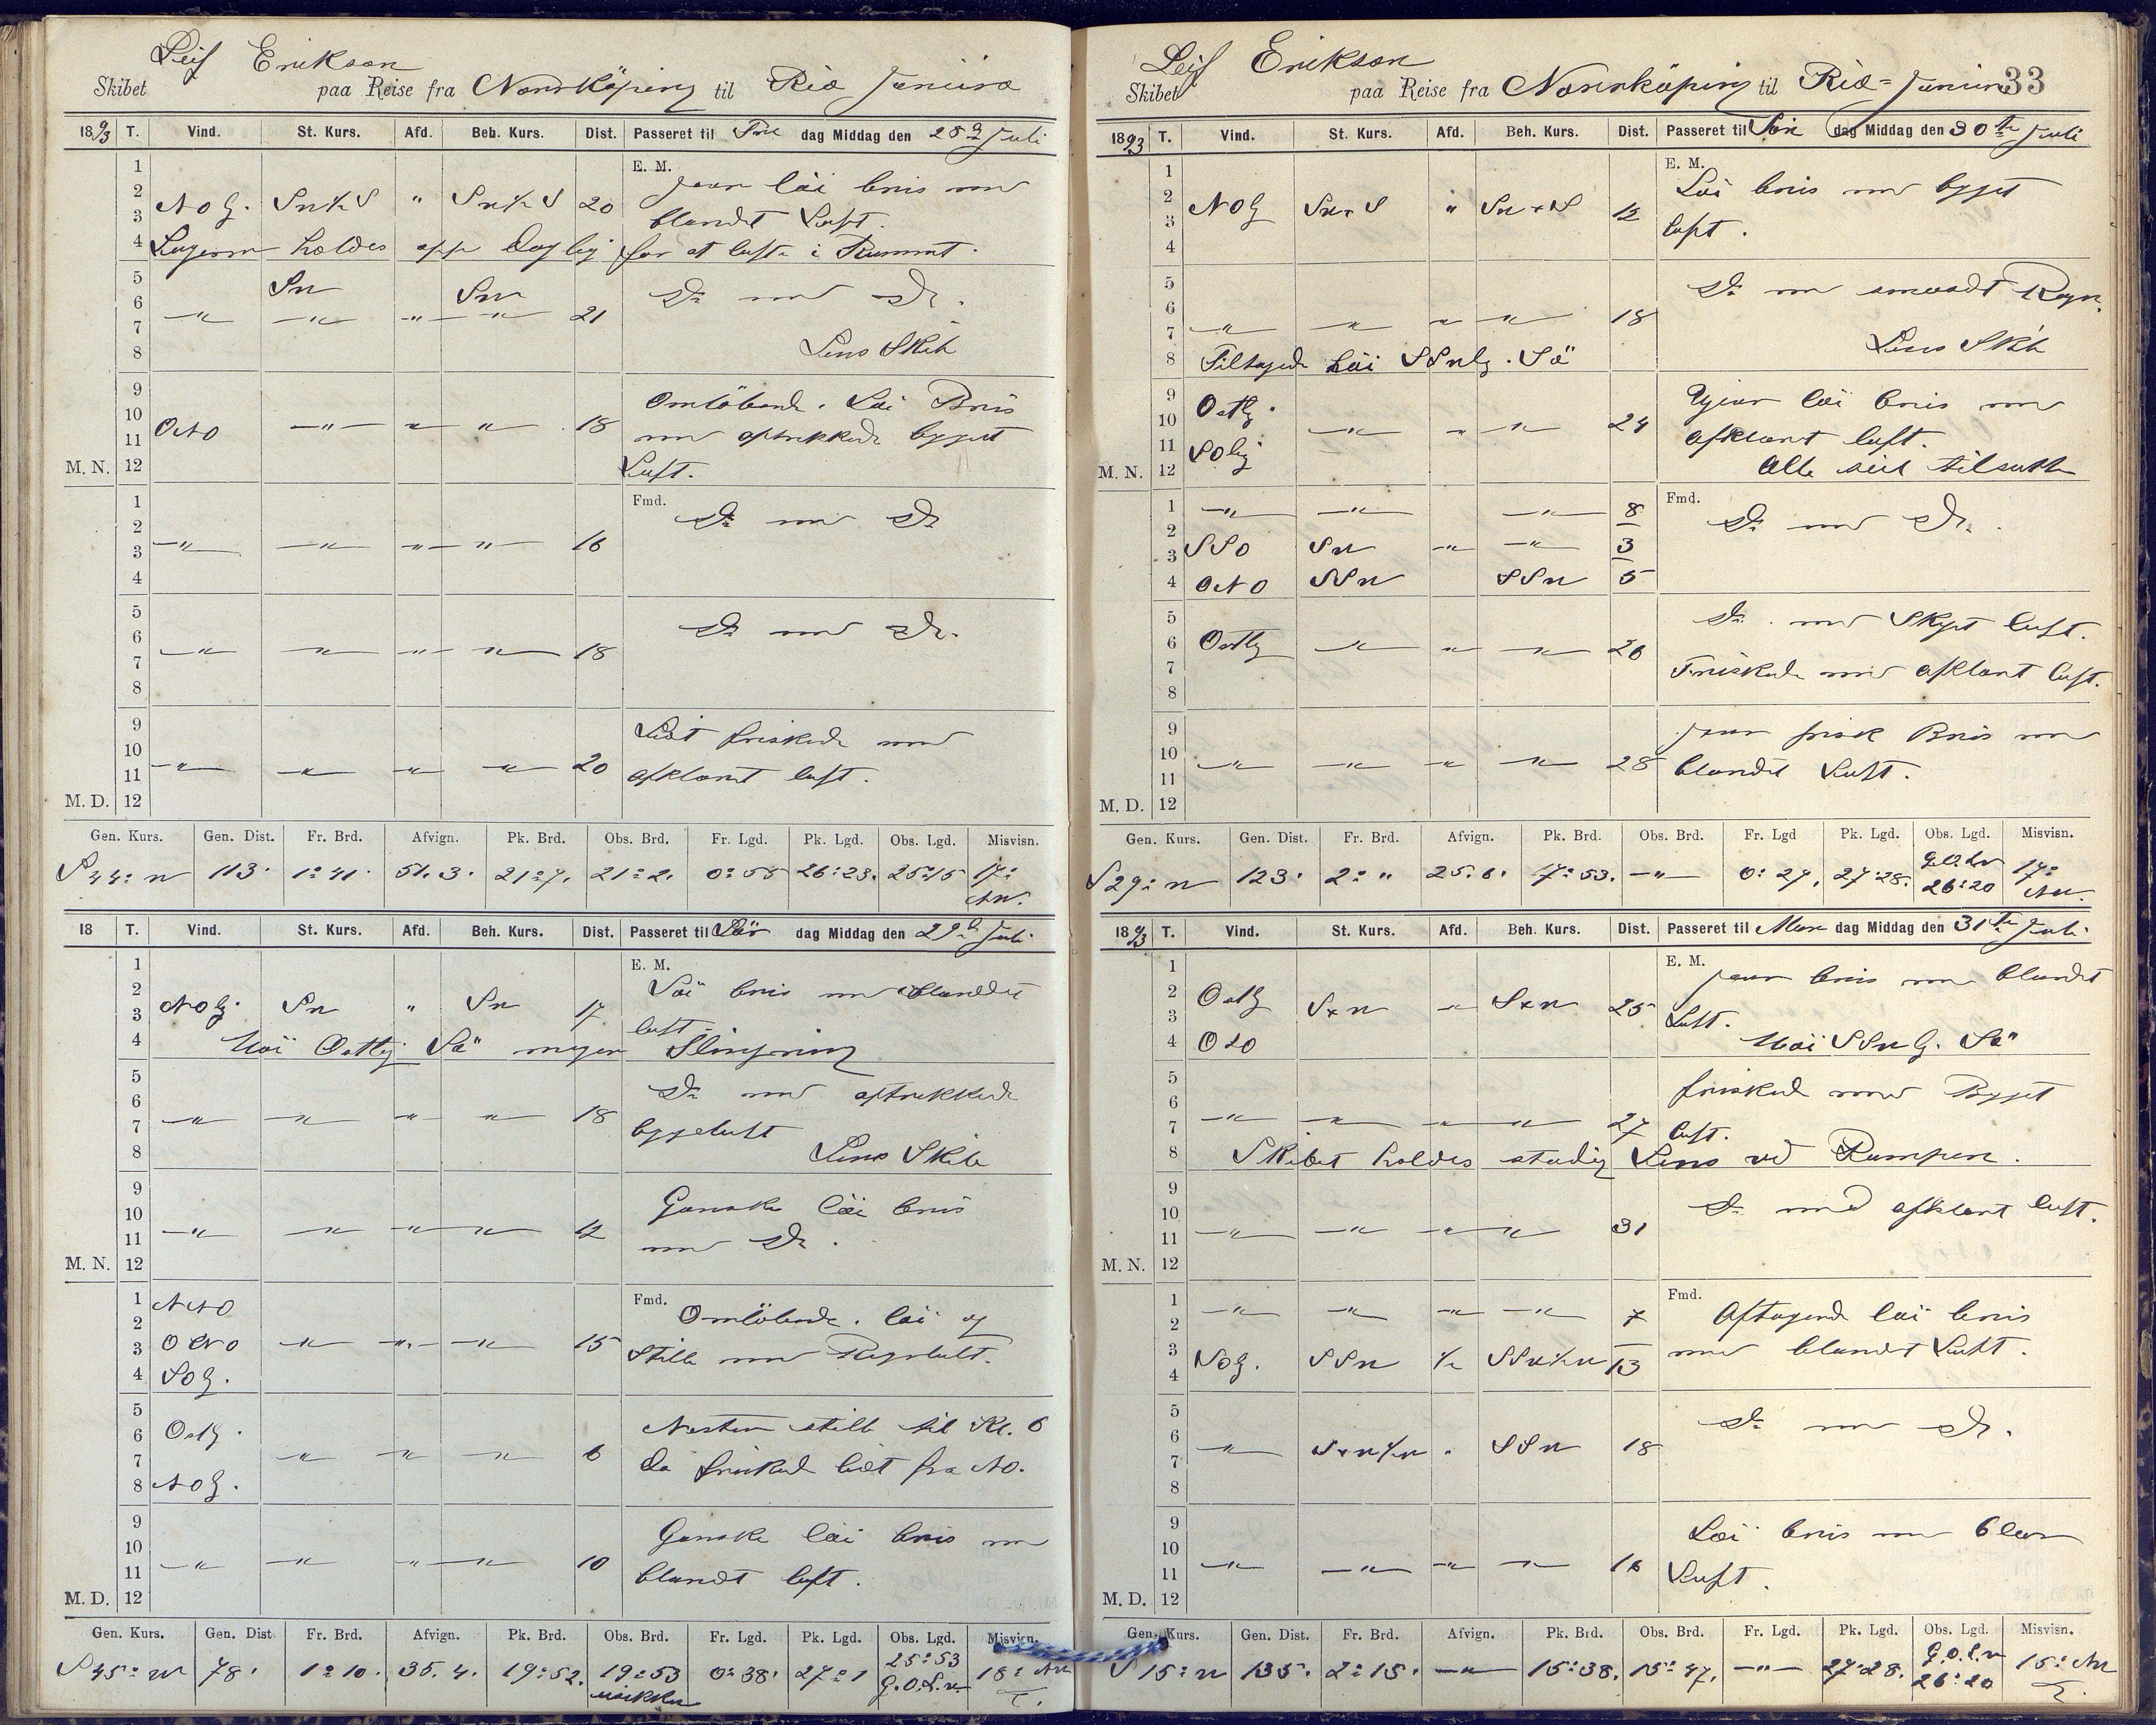 Leif Erikson
Skibet paa Reise fra Norrköping til Rio Janiero
1893 T. Vind. St. Kurs. Afd. Beh. Kurs. Dist. Passeret til Fre dag Middag den 28d Juli
1 E. M. Jevn löi bris med
2 NOlg. " 20
3 blandet Luft.
4 Lugerne holdes oppe Daglig for at lufte i Rummet.
5 Sw Sw
6 Do med Do.
7 " " " " 21
8 Lens Skib
9 Omlöbende. Löi Bris
10 ONO " " " 18 med bygget
11
M. N. 12 Luft.
1 Fmd. Do med Do
2
3 " " " " 16
4
5
6 Do med Do.
7 " " " " 18
8
9 Lidt friskede med
10
11 " " " " 20 afklaret luft.
M. D. 12
Gen. Kurs. Gen. Dist. Fr. Brd. Afvign. Pk. Brd. Obs. Brd. Fr. Lgd. Pk. Lgd. Obs. Lgd. Misvisn.
S 44° W 113. 1° 41. 51. 3. 21° 7. 21° 2. 0° 55 26° 23. 25° 15 17° NW.
18 T. Vind. St. Kurs. Afd. Beh. Kurs. Dist. Passeret til Lör dag Middag den 29d Juli
1 E. M. Löi bris med blandet
2
3 NOlg. Sw " Sw 17 luft
4 Höi Ostlig Sö megen Slingring
5 Do med
6
7 " " " " 18 byggeluft
8 Lens Skib
9 Ganske löi bris
10
11 " " " " 12 med Do.
M. N. 12
1 NNO Fmd. Omlöbende. löi og
2
3 ONO " " " 15 Stille med Regnluft.
4 SOlg.
5 Næsten stille til Kl. 6
6 Ostlg.
7 " " " 6 da friskede lidt fra NO.
8 NOlg.
9 Ganske löi bris med
10
11 " " " " 10 blandt luft.
M. D. 12
Gen. Kurs. Gen. Dist. Fr. Brd. Afvign. Pk. Brd. Obs. Brd. Fr. Lgd. Pk. Lgd. Obs. Lgd. Misvisn.
S 45° W 78. 1° 10. 35. 4. 19° 52. 19° 53 usikker 0° 38. 27° 1 25° 53 G.O.L.v. 18° NW
Leif Erikson 33
Skibet paa Reise fra Norrköping til Rio= Janiero
1893 T. Vind. St. Kurs. Afd. Beh. Kurs. Dist. Passeret til Sön dag Middag den 30te Juli
1 E. M. Löi bris med bygget
2 NOlg SWxS " SWxS 12
3 luft.
4
5 Do med Regn.
6
7 " " " " 18
8 Tiltagende Höi SSWlg. Sö Lens Skib
9 Ostlg. Ujevn löi bris med
10 " " " 24 afklaret luft.
11 SOlig
M. N. 12 Alle seil tilsatte
1 " " " 8 Fmd. Do med Do.
2
3 SSO SW " " 3
4 ONO SSW SSW 5
5 Do. med Skyet luft.
6 Ostlg " " " 26
7 Friskede med afklaret luft.
8
9 Jevn frisk Bris med
10
11 " " " " 28 blandet Luft.
M. D. 12
Gen. Kurs. Gen. Dist. Fr. Brd. Afvign. Pk. Brd. Obs. Brd. Fr. Lgd Pk. Lgd. Obs. Lgd. Misvisn.
S 29° W 123. 2° " 25. 6. 17° 53. " 0° 27. 27° 28. G.O.Lv 26° 20 17° NW.
1893 T. Vind. St. Kurs. Afd. Beh. Kurs. Dist. Passeret til Man dag Middag den 31te Juli
1 E. M. Jevn bris med blandt
2 Ostlg SxW " SxW 25
3 Luft.
4 OSO Höi SSWlg. Sö
5 friskede med Bygget
6
7 " " " " 27 luft.
8 Skibet holdes stadig Lens ved Pumpen.
9 Do med afklaret luft.
10
11 " " " " 31
M. N. 12
1 " " " " 7 Fmd. Aftagende löi bris
2
3 NOlg. SSW ½ SSW½W 13 med blandet Luft.
4
5 Do med Do.
6
7 " SxW½W " SSW 18
8
9 Löi bris med klar
10
11 " " " " 16 Luft.
M. D. 12
Gen. Kurs. Gen. Dist. Fr. Brd. Afvign. Pk. Brd. Obs. Brd. Fr. Lgd. Pk. Lgd. Obs. Lgd. Misvisn.
S 15° W 135. 2° 15. " 15° 38. 15° 47. " 27° 28. G.O.L.v 26° 20 15° NW